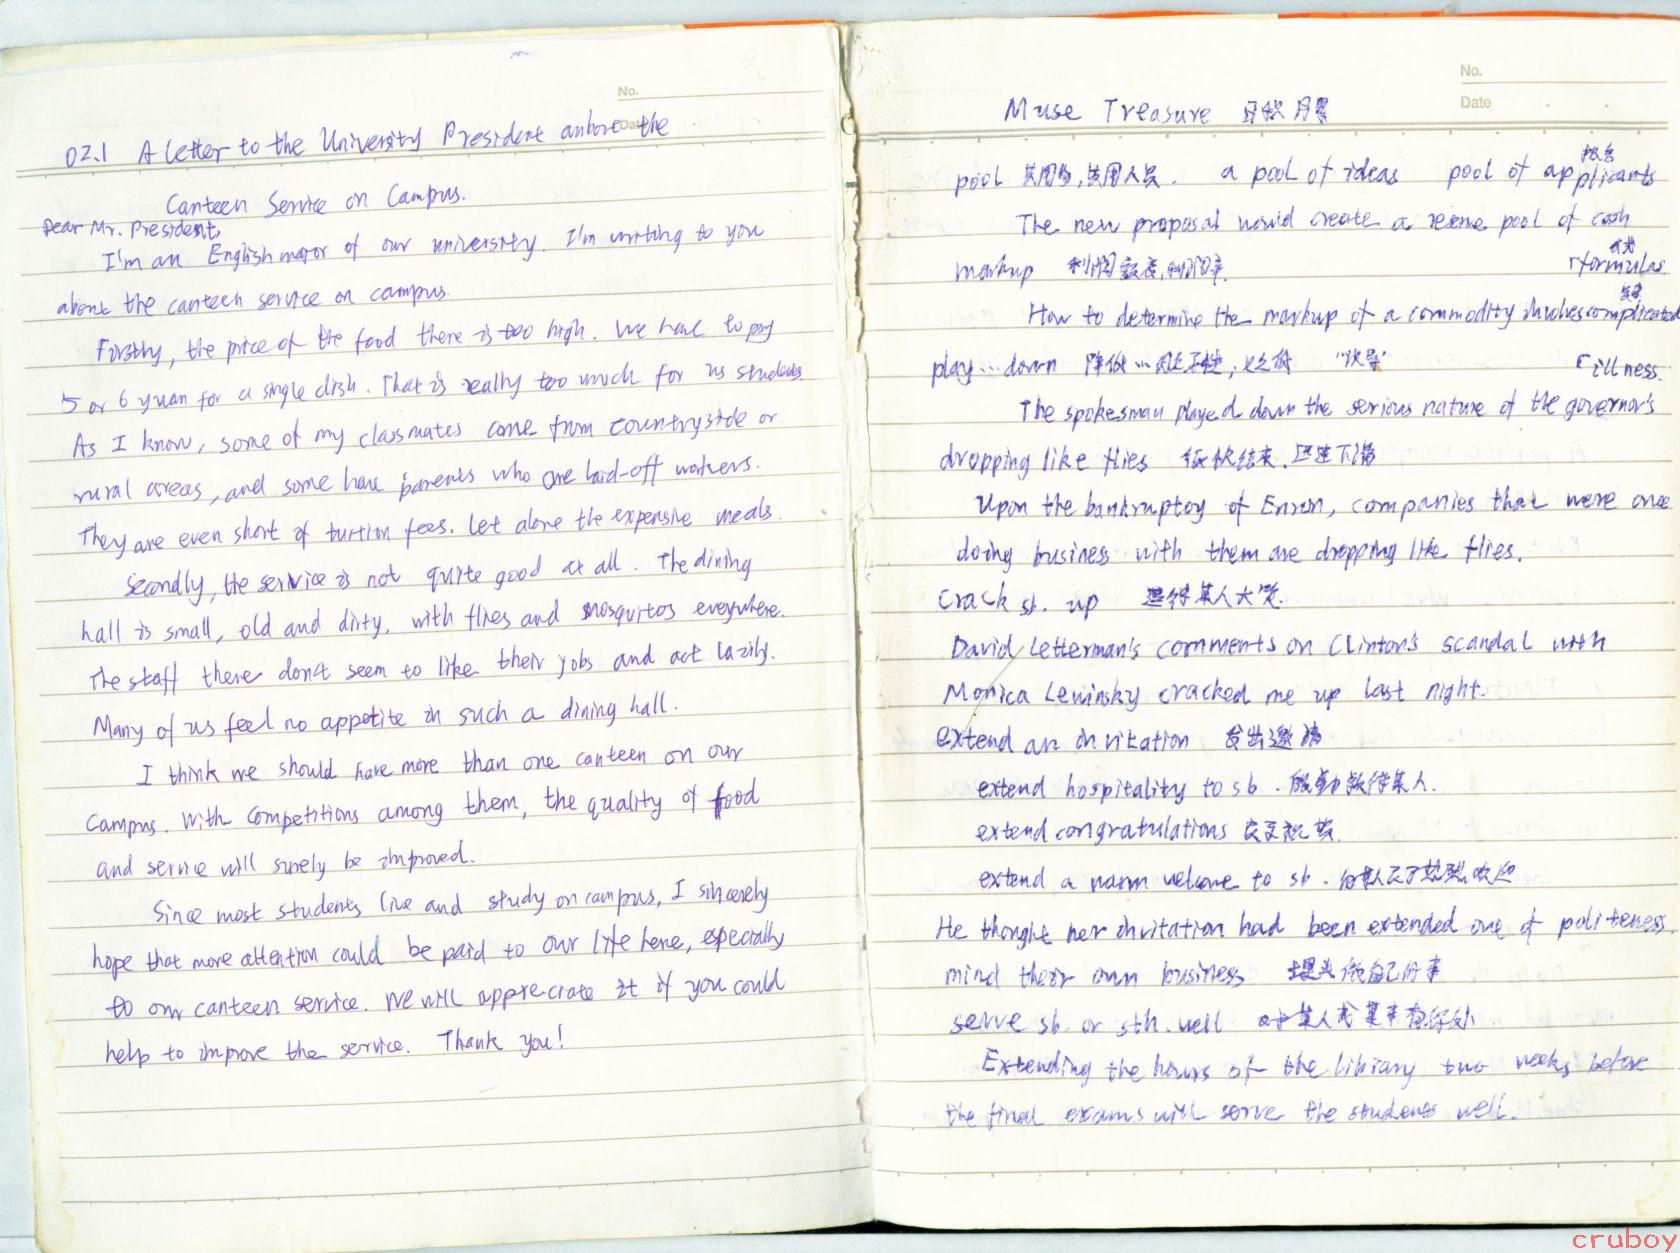 No.
Date
02.1 A Letter to the University President about the
Canteen Service on Campus.
Dear Mr. President,
I'm an English major of our university. I'm writing to you
about the canteen service on campus.
Firstly, the price of the food there is too high. We have to pay
5 or 6 yuan for a single dish. That is really too much for us students.
As I know, some of my classmates come from countryside or
rural areas, and some have parents who are laid-off workers.
They are even short of tuition fees. Let alone the expensive meals.
Secondly, the service is not quite good at all. The dining
hall is small, old and dirty, with flies and mosquitos everywhere.
The staff there don't seem to like their jobs and act lazily.
Many of us feel no appetite in such a dining hall.
I think we should have more than one canteen on our
campus. With competitions among them, the quality of food
and service will surely be improved.
Since most students live and study on campus, I sincerely
hope that more attention could be paid to our life here, especially
to our canteen service. We will appreciate it if you could
help to improve the service. Thank you!
No.
Date
Muse Treasure 日积月累
pool 共用物,共用人员. a pool of ideas pool of applicants
The new proposal would create a reserve pool of cash
markup 利润
formulas
How to determine the markup of a commodity involves complicated
play…down 降低…
illness.
The spokesman played down the serious nature of the governor's
dropping like flies 迅速下滑
Upon the bankruptcy of Enron, companies that were once
doing business with them are dropping like flies.
Crack sb. up 逗得某人大笑.
David Letterman's comments on Clinton's scandal with
Monica Lewinsky cracked me up last night.
extend an invitation 发出邀请
extend hospitality to sb. 殷勤款待某人.
extend congratulations 表示祝贺.
extend a warm welcome to sb. 热烈欢迎
He thought her invitation had been extended out of politeness.
mind their own business 埋头做自己的事
serve sb. or sth. well 对某人或某事有好处
Extending the hours of the library two weeks before
the final exams will serve the students well.
cruboy